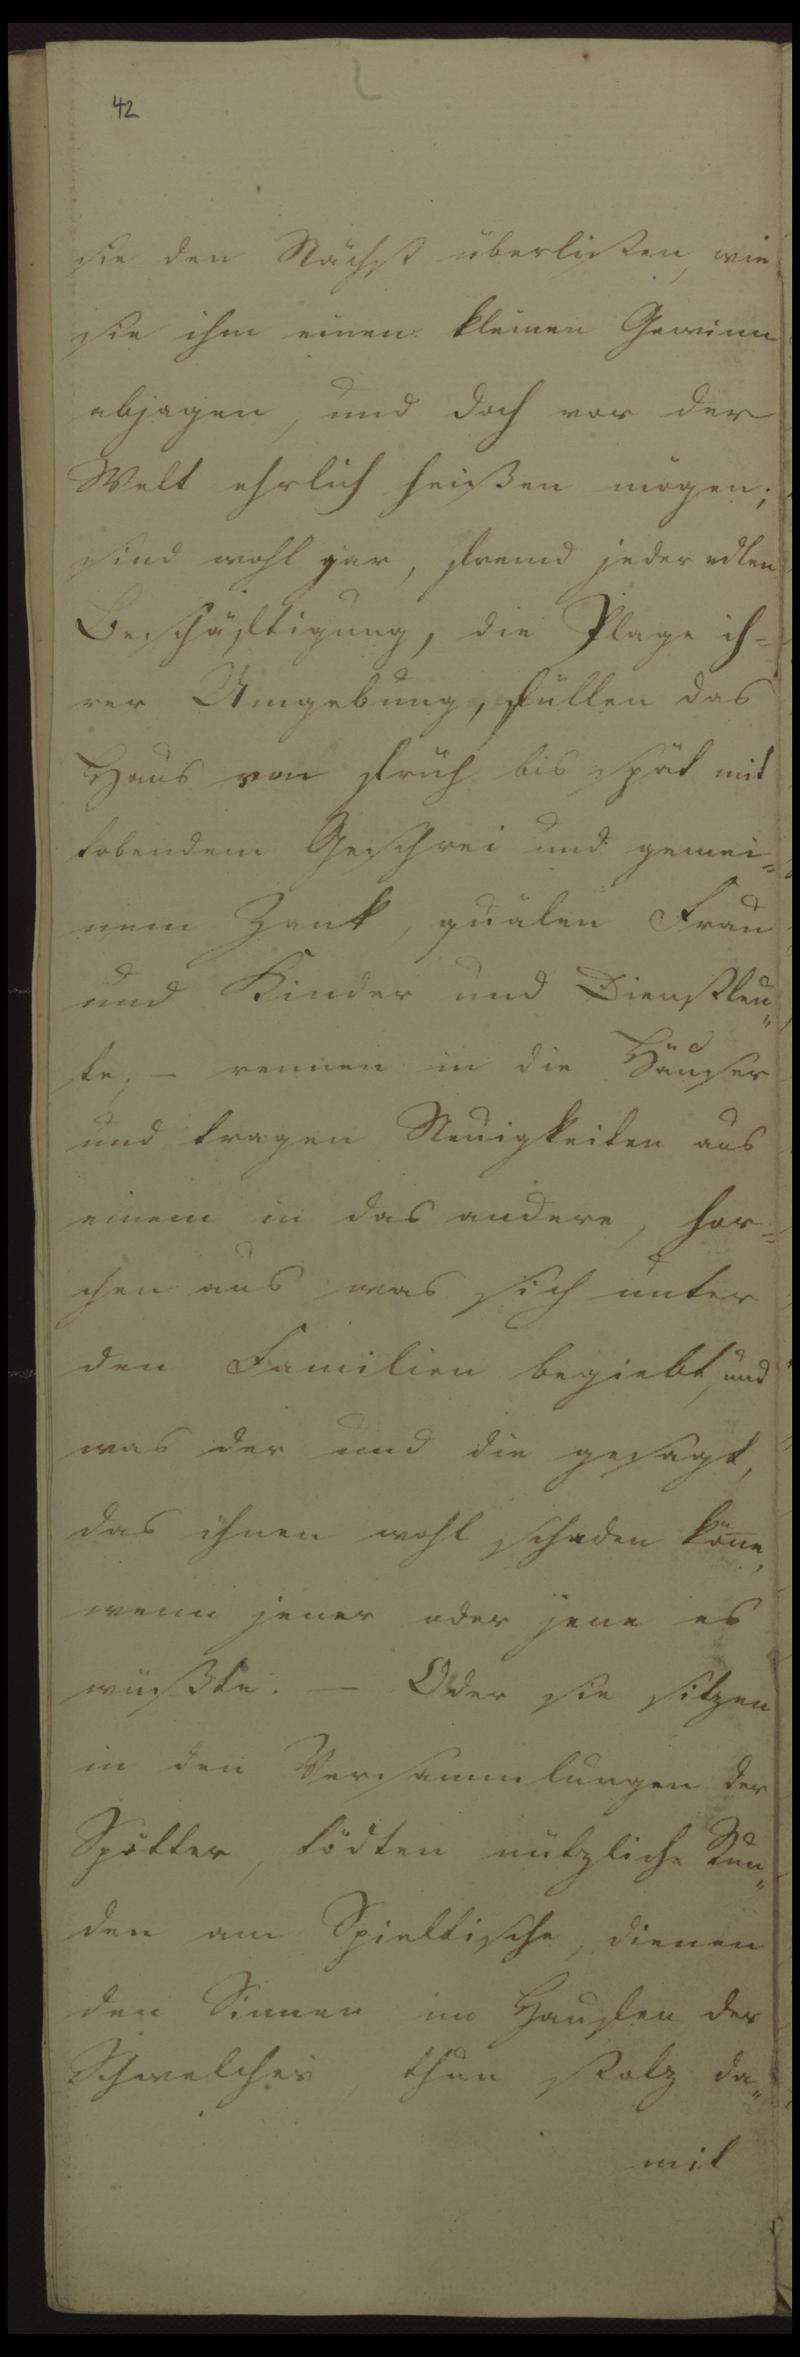 42
sie den Nächst überlisten, wie
sie ihm einen kleinen Gewinn
abjagen, und doch vor der
Welt ehrlich heißen mögen;
sind wohl gar, fremd jeder edlen
Beschäftigung, die Plage ih=
rer Umgebung, füllen das
Haus von früh bis spät mit
tobendem Geschrei und gemei=
nem Zank, quälen Frau
und Kinder und Dienstleu=
te, – rennen in die Häuser
und tragen Neuigkeiten aus
einem in das andere, hor=
chen aus was sich unter
den Familien begiebt, und
was der und die gesagt,
das ihnen wohl schaden köne,
wenn jener oder jene es
wüßte. – Oder sie sitzen
in den Versammlungen der
Spötter, tödten nützliche Stun=
den am Spieltische, dienen
den Sinnen im Hause der
Schwelcher, thun stolz da=
mit